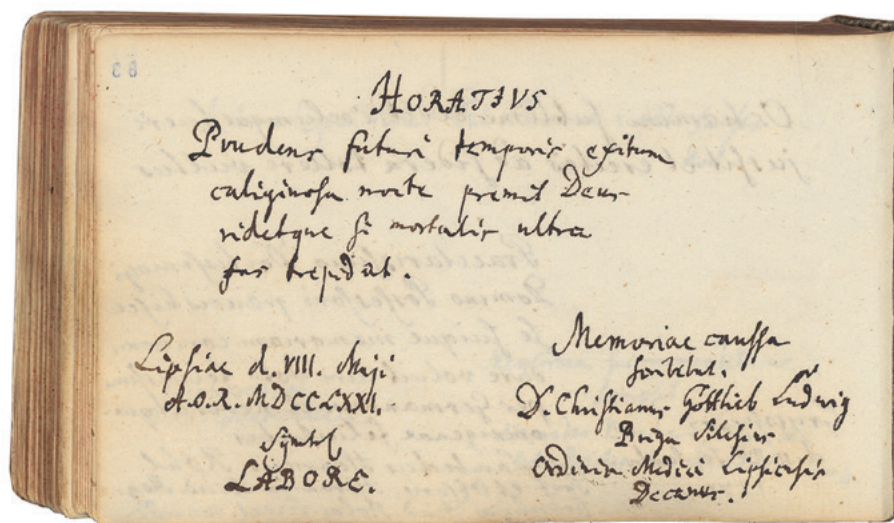 HORATIVS
Prudens futuri temporis exitum
caliginosa nocte premit Deus
ridetque si mortalis ultra
fas trepidat.
Lipsiae d. VIII. Maji
A.O.R. MDCCLXXI.
Symbol
LABORE.
Memoriae caussa
scribebat.
D. Christianus Gottlieb Ludwig
Brega Silesius
Ordinis Medici Lipsiensis
Decanus.